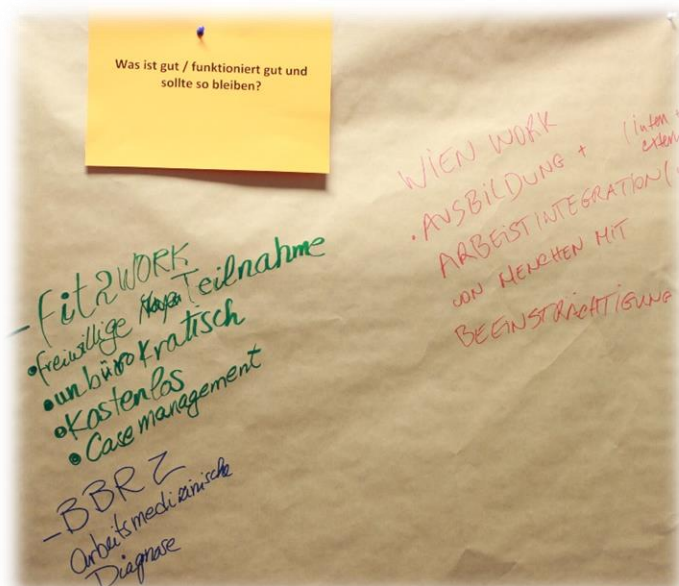 Was ist gut / funktioniert gut und
sollte so bleiben?
- fit2WORK
• freiwillige Teilnahme
• unbürokratisch
• Kostenlos
• Case management
- BBRZ
arbeitsmedizinische
Diagnose
WIEN WORK
• AUSBILDUNG + (intern +
extern
ARBEISTINTEGRATION (
VON MENCHEN MIT
BEEINSTRÄCHTIGUNG